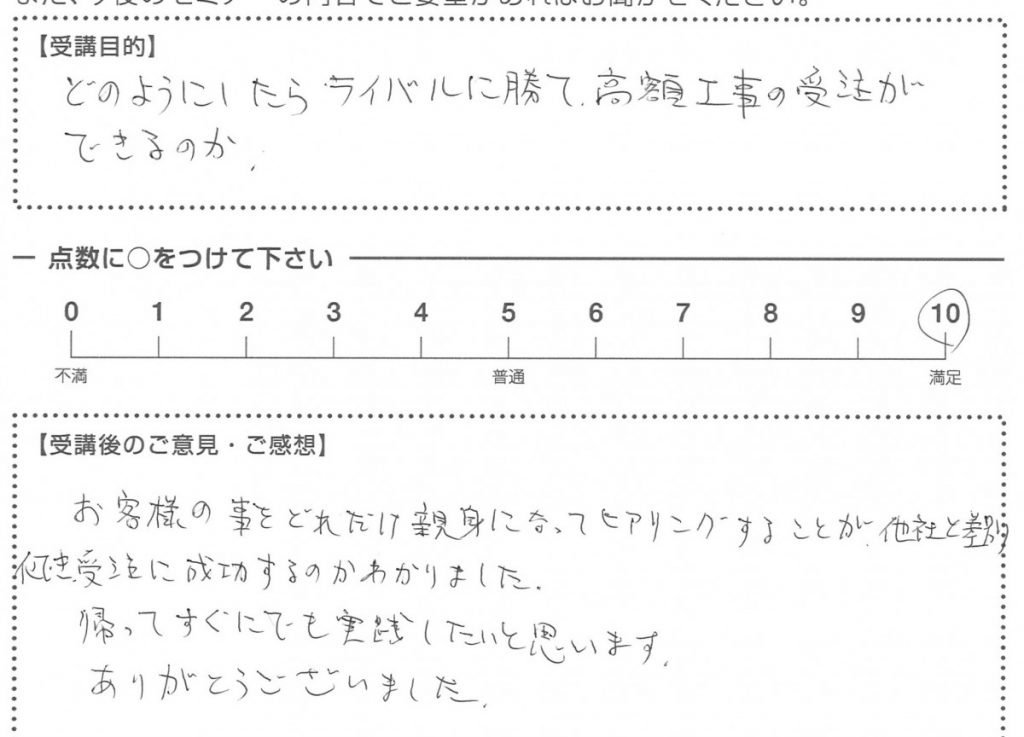 また、今後のセミナーの内容でご要望があればお聞かせください。
【受講目的】
どのようにしたらライバルに勝て、高額工事の受注が
できるのか、
点数に○をつけて下さい
0 1 2 3 4 5 6 7 8 9 10
不満 普通 満足
【受講後のご意見・ご感想】
お客様の事をどれだけ親身になってヒアリングすることが、他社と差別
化でき受注に成功するのかわかりました。
帰ってすぐにでも実践したいと思います。
ありがとうございました。